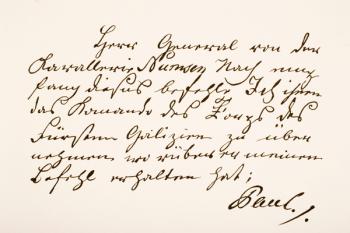 Herr General von der
Kavallerie Numsen Nach emp
fang dieses befehle Ich ihnen
das Komando des Korps des
Fürsten Galizien zu über
nehmen, worüber er meinen
Befehl erhalten hat;
Paul.